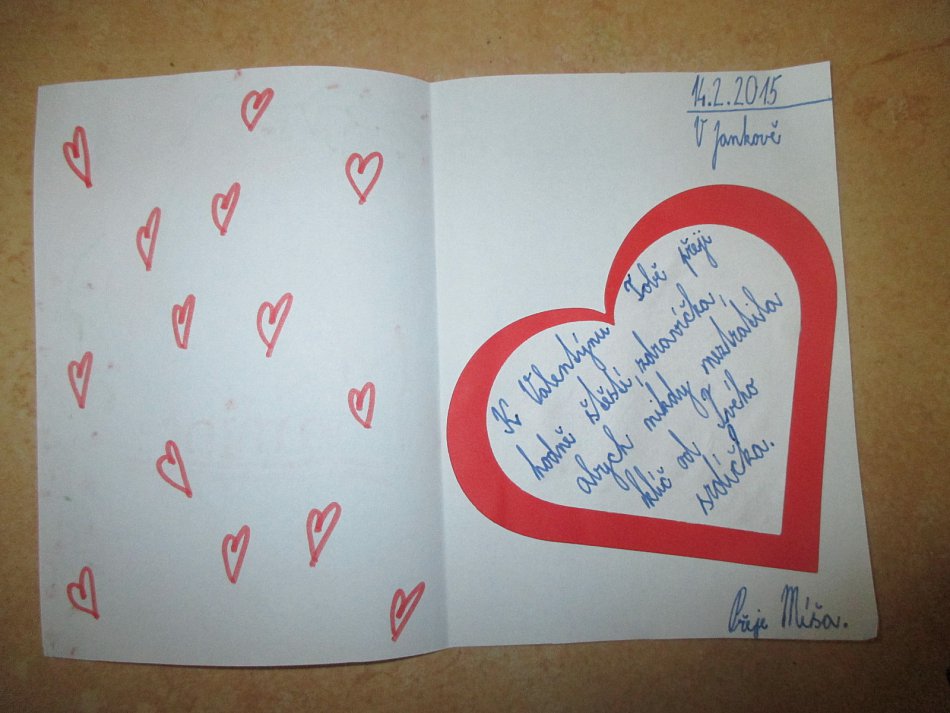 14.2.2015
V Jankově
K Valentýnu Tobě přeji
hodně štěstí, zdravíčka
abych nikdy neztratila
klíč od tvého
srdíčka.
Přeje Míša.